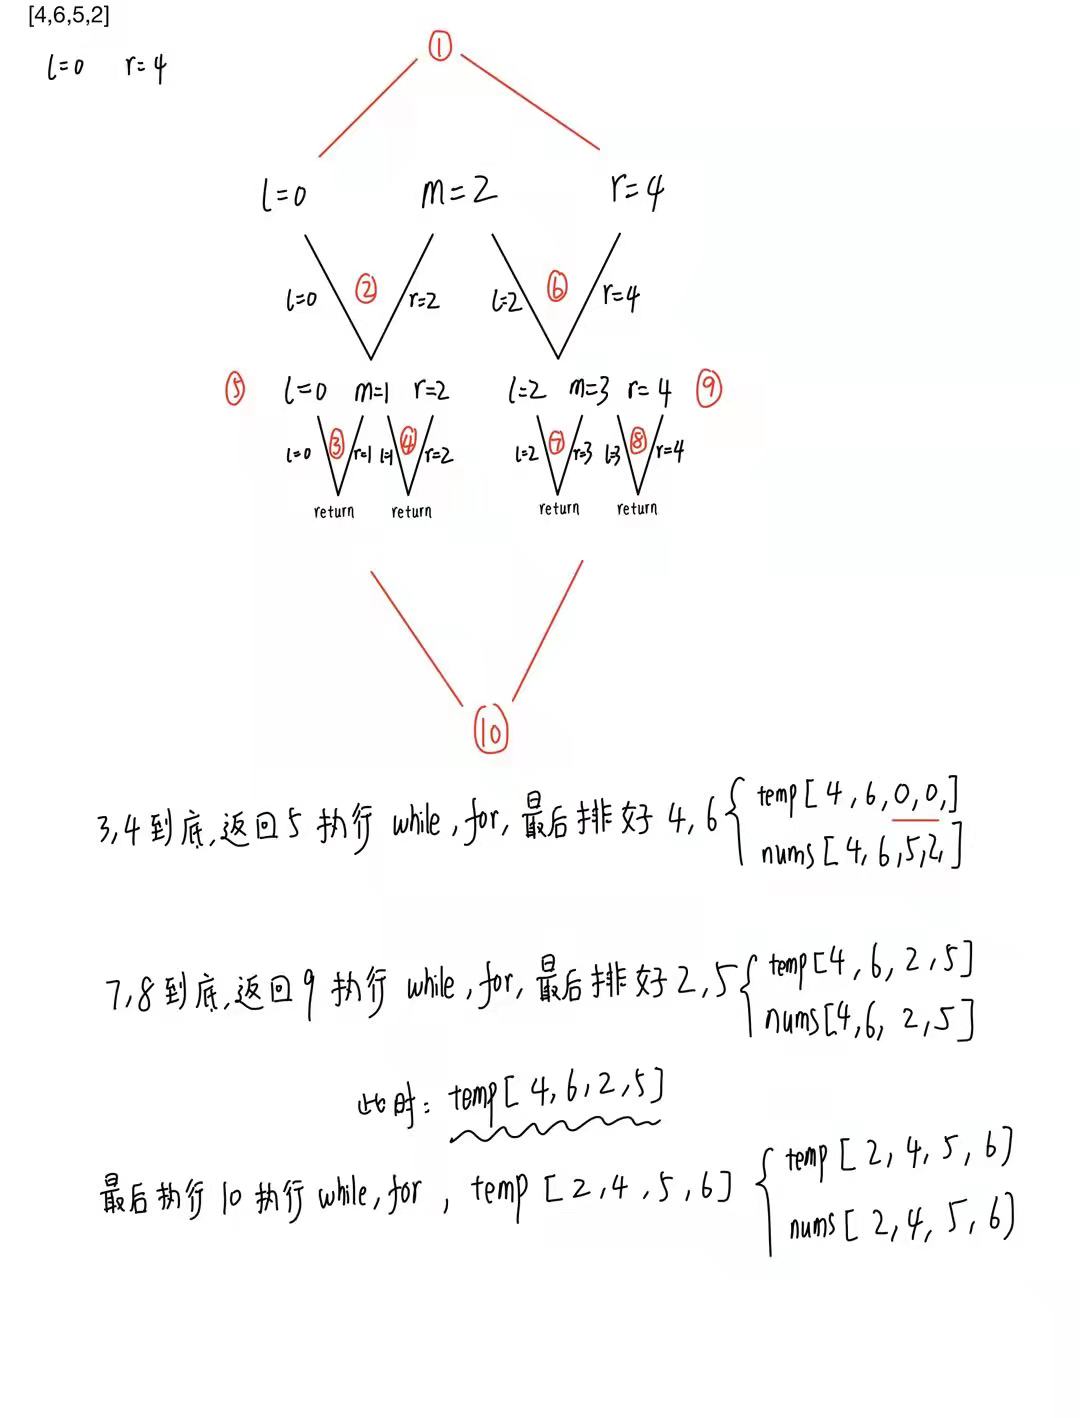 [4,6,5,2]
l=0 r=4
①
l=0 m=2 r=4
l=0 ② r=2 l=2 ⑥ r=4
⑤ l=0 m=1 r=2 l=2 m=3 r=4 ⑨
l=0 ③ r=1 l=1 ④ r=2 l=2 ⑦ r=3 l=3 ⑧ r=4
return return return return
⑩
3,4到底,返回5 执行 while,for,最后排好4,6 { temp[4,6,0,0,]
nums[4,6,5,2,]
7,8到底,返回9 执行 while,for,最后排好2,5 { temp[4,6,2,5]
nums[4,6,2,5]
此时: temp[4,6,2,5]
最后执行10执行while,for, temp[2,4,5,6] { temp[2,4,5,6]
nums[2,4,5,6]